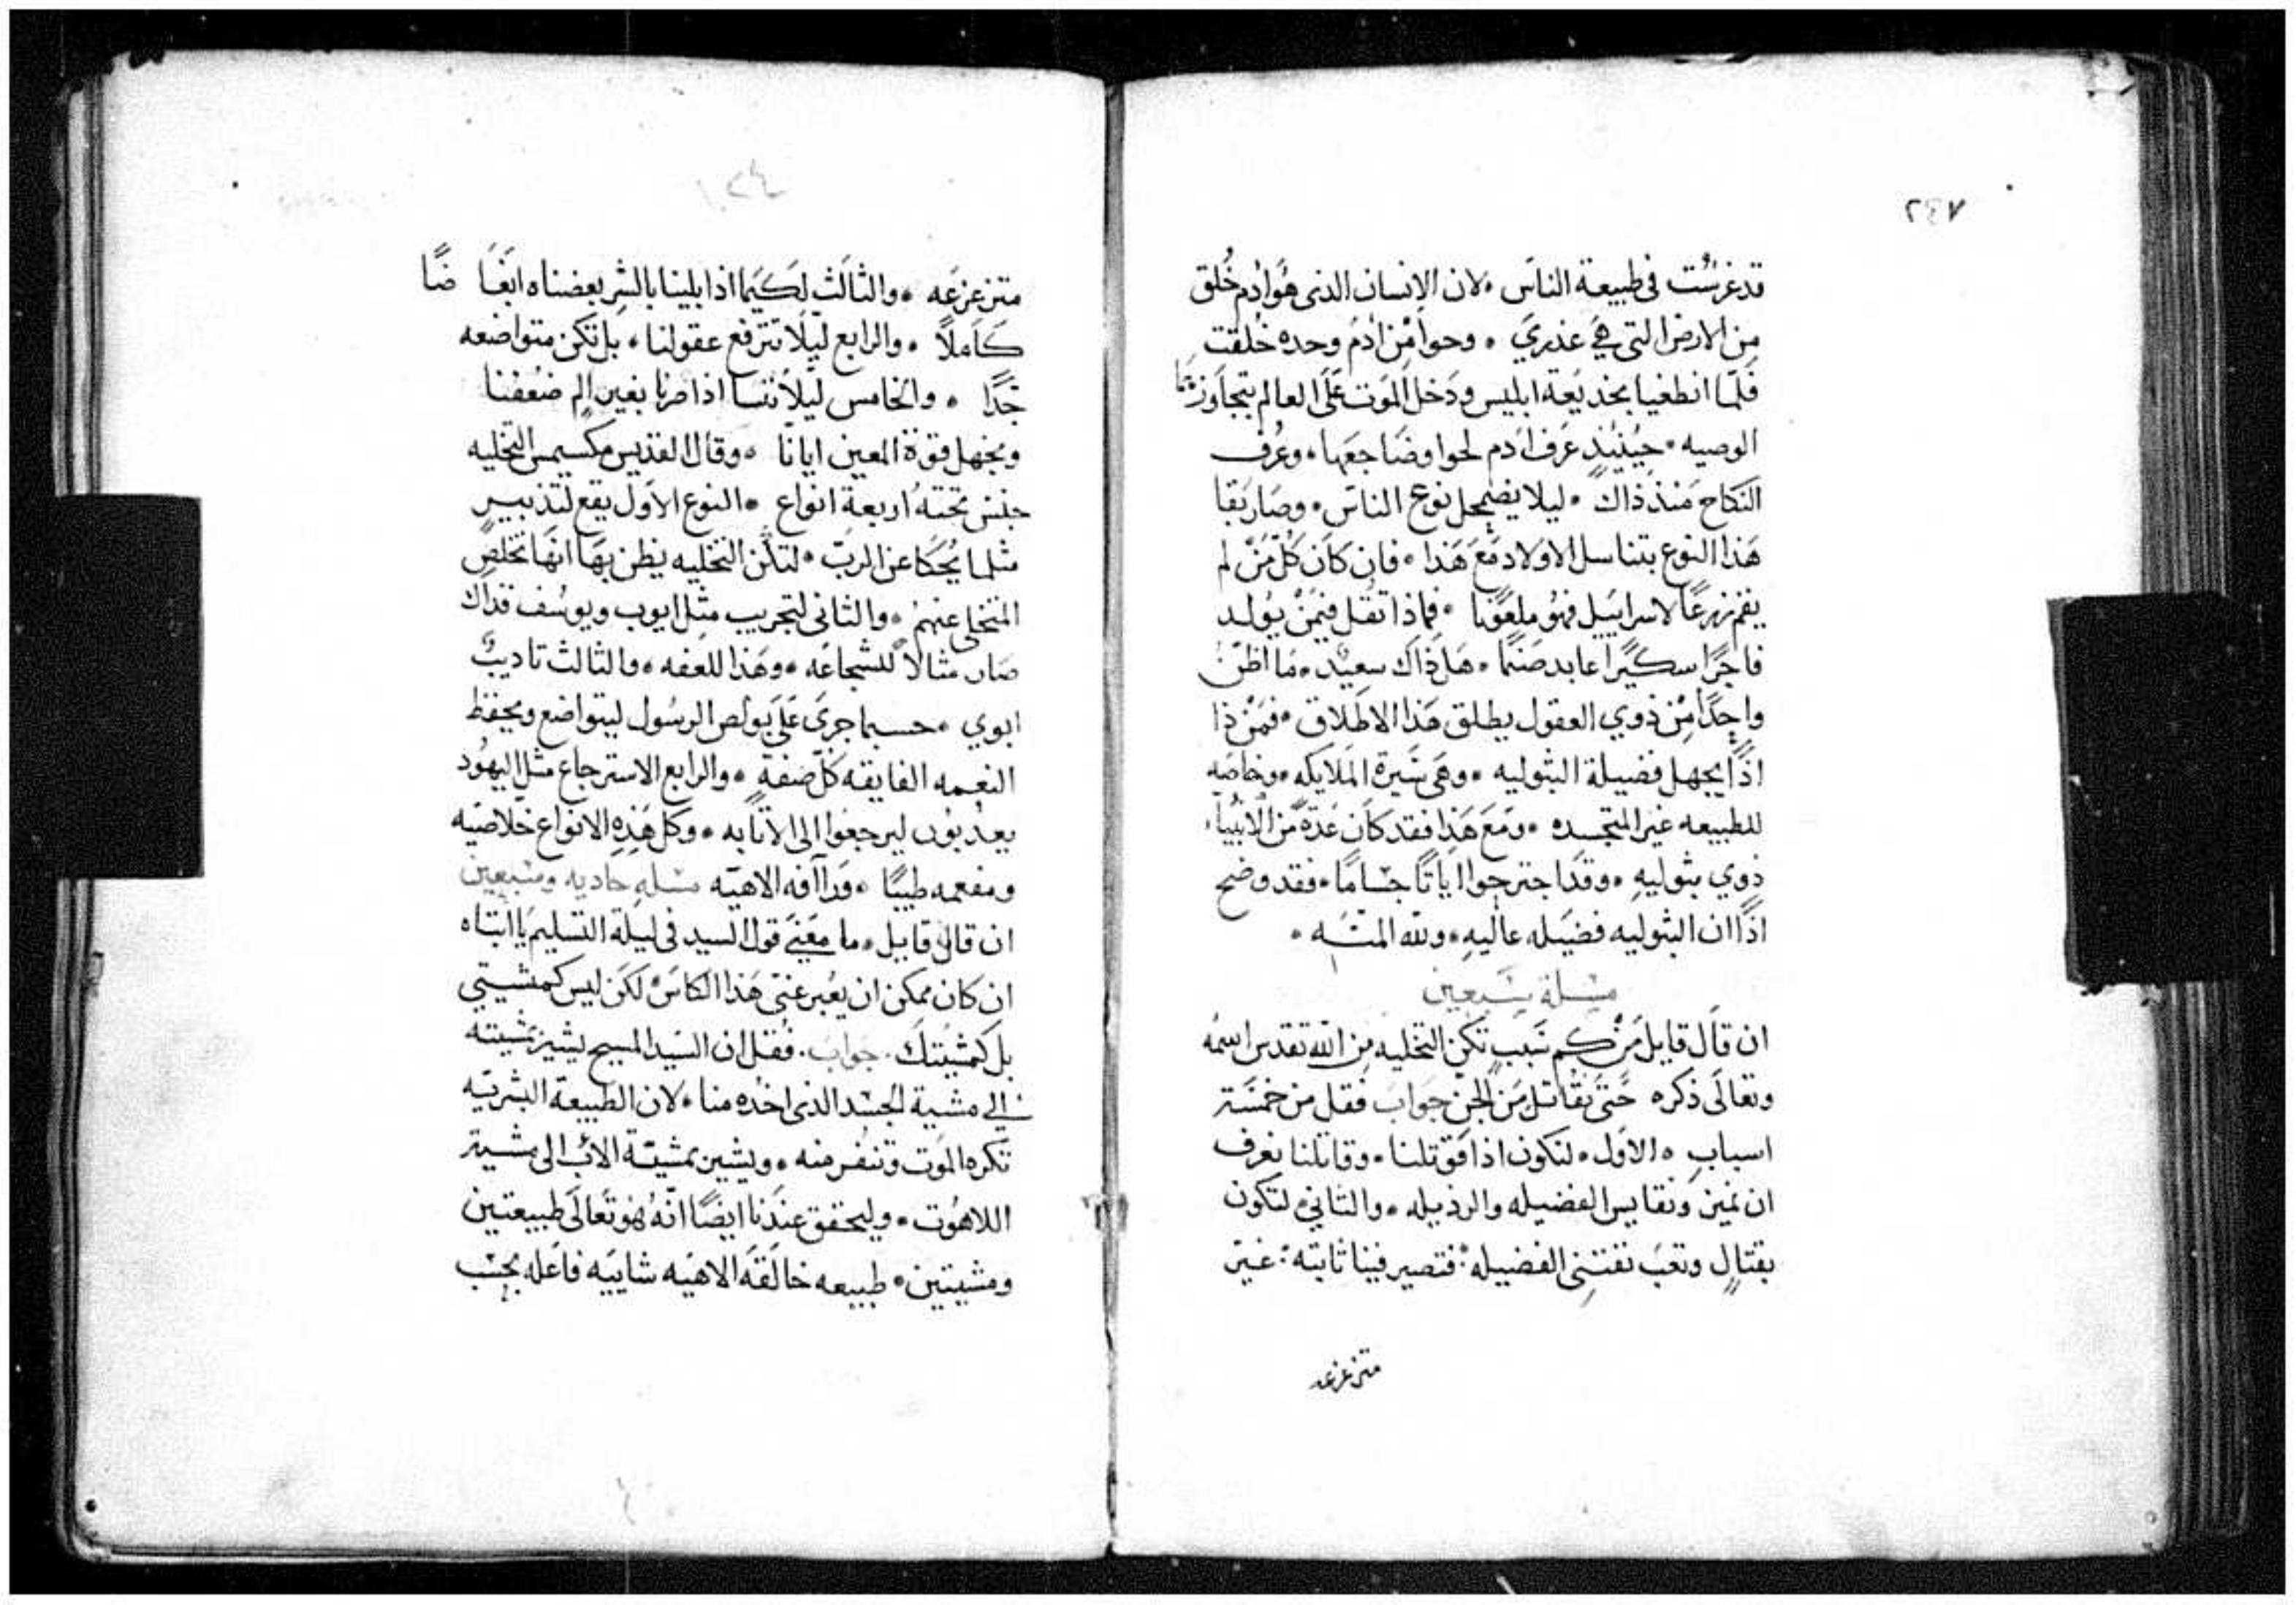 ٢٤٧
قد غرست في طبيعة الناس ۰ لان الانسان الذى هو ادم خُلق
من الارض التي هي عذري ۰ وحوا من ادم وحده خُلقت
فلما انطغيا بخديعة ابليس ودخل الموت على العالم بتجاوزهما
الوصيه ۰ حينيذٍ عرف ادم لحوا وضاجعها ۰ وعُرف
النكاح منذ ذاك ۰ ليلا يضمحل نوع الناس ۰ وصار بقا
هذا النوع بتناسل الاولاد مع هذا ۰ فان كان كل من لم
يقم زرعًا لاسراييل فهو ملعونا ۰ فماذا تقل فيمن يولد
فاجرًا سكيرًا عابد صنما ۰ هل ذاك سعيد ۰ ما اظن
واحدًا من ذوي العقول يطلق هذا الاطلاق ۰ فمن ذا
اذًا يجهل فضيلة البثوليه ۰ وهى سيرة الملايكه ۰ وخاصه
للطبيعه غير المتجسده ۰ ومع هذا فقد كان عدة من الانبياء
ذوي بثوليه ۰ وقد اجترحوا اياتًا جسامًا ۰ فقد وضح
اذًا ان البثوليه فضيله عاليه ۰ ولله المنه ۰
مسلة سبعين
ان قال قايل من كم سبب تكن التخليه من الله تقدس اسمه
وتعالى ذكره حتى نقاتل من الجن جواب فقل من خمسة
اسباب ۰ الاول ۰ لنكون اذا قوتلنا ۰ وقاتلنا نعرف
ان نميز ونقايس الفضيله والرذيله ۰ والثاني لنكون
بقتالٍ وتعب نقتني الفضيله ۰ فتصير فينا ثابته ۰ غير
متزعزعه
متزعزعه ۰ والثالث لكيما اذا بلينا بالشر بغضناه ابغا ضًا
كاملاً ۰ والرابع ليلا تترفع عقولنا ۰ بل تكن متواضعه
جدًا ۰ والخامس ليلا ننسا اذا صرنا بغير الم ضعفنا
ونجهل قوة المعين ايانا ۰ وقال القديس مكسيمس التخليه
جنس تحته اربعة انواع ۰ النوع الاول يقع لتدبير
مثلما يُحكا عن الرب ۰ لتكن التخليه يظن بها انها تخلص
المتخلى عنهم ۰ والثاني لتجريب مثل ايوب ويوسف فذاك
صار مثالاً للشجاعه ۰ وهذا للعفه ۰ والثالث تاديب
ابوي ۰ حسبما جرى على بولص الرسول ليتواضع ويحفظ
النعمه الفايقه كل صفةٍ ۰ والرابع الاسترجاع مثل اليهود
يعذبون ليرجعوا الى الاتابه ۰ وكل هذه الانواع خلاصيه
ومفعمه طيبًا ۰ ورآافه الاهيّه مسله حاديه وسبعين
ان قال قايل ۰ ما معنى قول السيد في ليلة التسليم يا ابتاه
ان كان يمكن ان يعبر عني هذا الكاس لكن ليس كمشيتي
بل كمشيتك ۰ جواب ۰ فقل ان السيد المسيح يشير بمشيته
الي مشية الجسد الذى اخذه منا ۰ لان الطبيعة البشريه
تكره الموت وتنفر منه ۰ ويشير بمشيّة الاب الى مشية
اللاهوت ۰ وليحقق عندنا ايضًا انه هو تعالى طبيعتين
ومشيتين ۰ طبيعه خالقه الاهيه شاييه فاعله بحسب